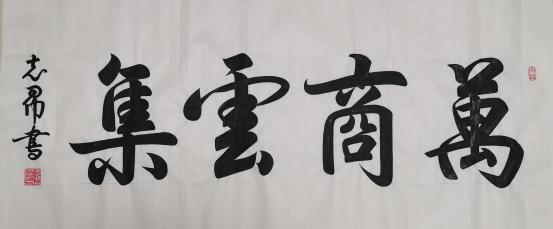 萬商雲集
志昂書